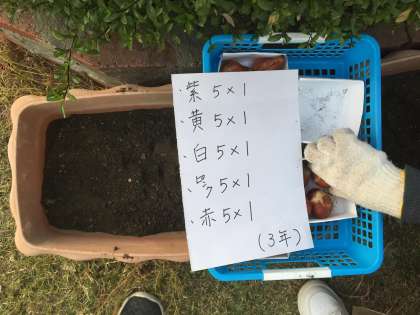 ・紫 5×1
・黄 5×1
・白 5×1
・ピンク 5×1
・赤 5×1
(3年)